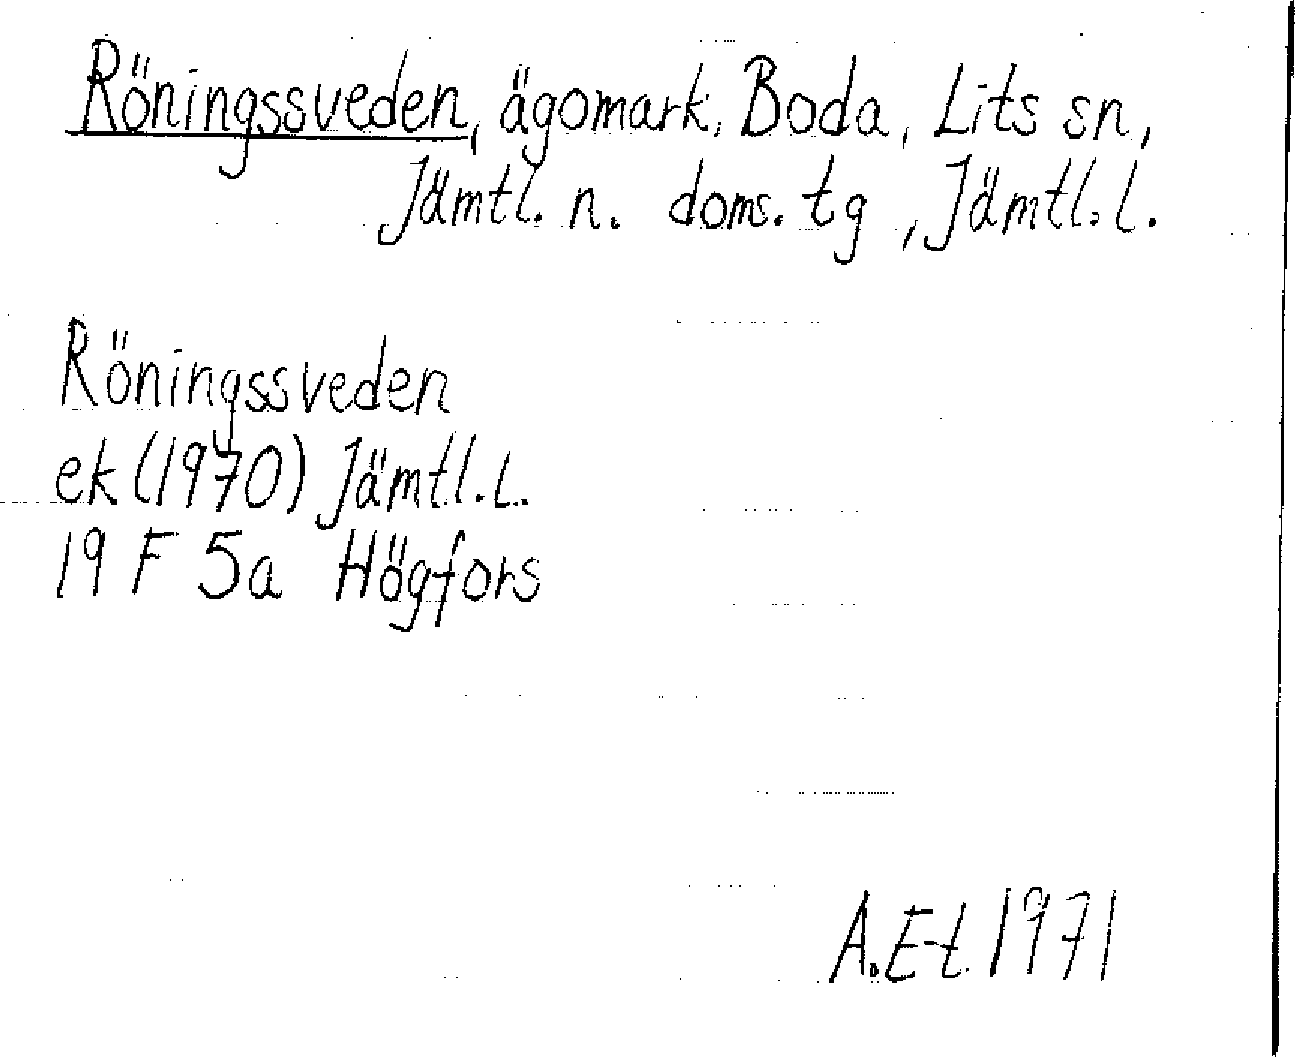 Röningssveden, ägomark, Boda, Lits sn,
Jämtl. n. doms. tg, Jämtl. l.
Röningssveden
ek (1970) Jämtl. L.
19 F 5a Högfors
A. E-t. 1971